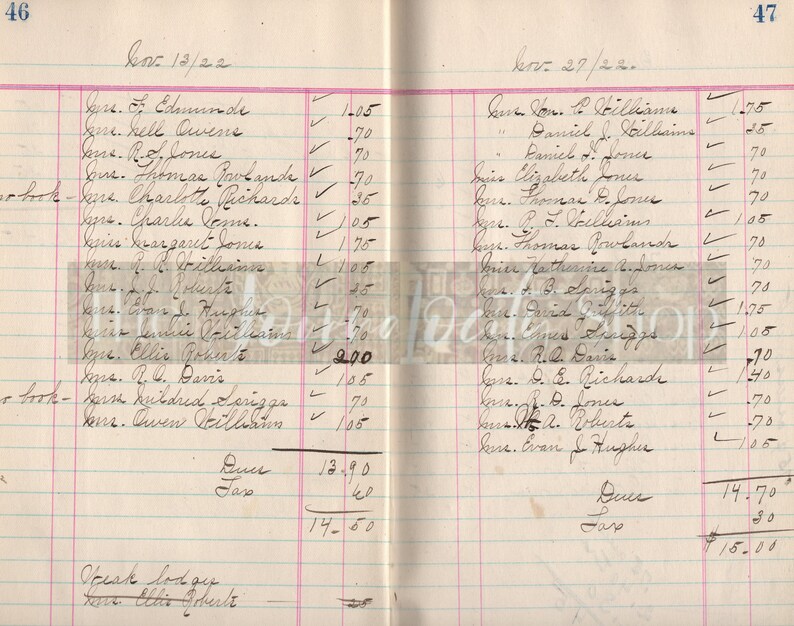 46
Nov. 13/22
Mrs. F. Edmunds ✓ 1.05
Mrs. Nell Owens ✓ .70
Mrs. R. S. Jones ✓ 70
Mrs. Thomas Rowlands ✓ .70
book - Mrs. Charlotte Richards ✓ 35
Mrs. Charles Wms. ✓ 1 05
Miss Margaret Jones ✓ 1 75
Mrs. R. R. Williams ✓ 1 05
Mrs. J. J. Roberts ✓ 35
Mrs. Evan J. Hughes ✓ .70
Jennie Williams ✓ .70
Mrs. Ellis Roberts ✓ 2 10
Mrs. R. O. Davis ✓ 1 05
book - Mildred Spriggs ✓ 70
Mrs. Owen Williams ✓ 1 05
Dues 13.90
Tax 60
14.50
Weak lodges
Mrs. Ellis Roberts 25
47
Nov. 27/22.
Mrs. Wm. P. Williams ✓ 1.75
" Daniel J. Williams ✓ 35
" Daniel H. Jones ✓ 70
Miss Elizabeth Jones ✓ 70
Mrs. Thomas D. Jones ✓ 70
Mrs. R. F. Williams ✓ 1 05
Mrs. Thomas Rowlands ✓ 70
Miss Katherine A. Jones ✓ 70
Mrs. J. B. Spriggs ✓ 70
Mrs. David Griffith ✓ 1.75
Spriggs ✓ 1 05
Mrs. R. O. Davis ✓ .70
Mrs. D. E. Richards ✓ 1.40
Mrs. R. D. Jones ✓ .70
Mrs. A. Roberts ✓ .70
Mrs. Evan J. Hughes ✓ 1 05
Dues 14.70
Tax 30
$ 15.00